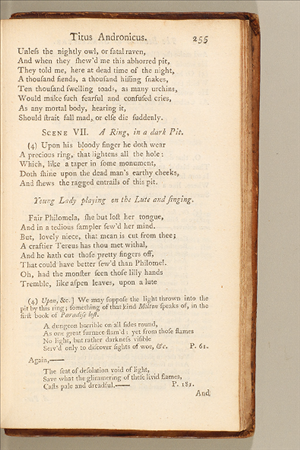 Titus Andronicus. 255
Unleſs the nightly owl, or fatal raven,
And when they ſhew'd me this abhorred pit,
They told me, here at dead time of the night,
A thouſand fiends, a thouſand hiſſing ſnakes,
Ten thouſand ſwelling toads, as many urchins,
Would make ſuch fearful and confuſed cries,
As any mortal body, hearing it,
Should ſtrait fall mad, or elſe die ſuddenly.
SCENE VII. A Ring, in a dark Pit.
(4) Upon his bloody finger he doth wear
A precious ring, that lightens all the hole:
Which, like a taper in ſome monument,
Doth ſhine upon the dead man's earthy cheeks,
And ſhews the ragged entrails of this pit.
Young Lady playing on the Lute and ſinging.
Fair Philomela, ſhe but loſt her tongue,
And in a tedious ſampler ſew'd her mind.
But, lovely niece, that mean is cut from thee;
A craftier Tereus has thou met withal,
And he hath cut thoſe pretty fingers off,
That could have better ſew'd than Philomel.
Oh, had the monſter ſeen thoſe lilly hands
Tremble, like aſpen leaves, upon a lute
(4) Upon, &c.] We may ſuppoſe the light thrown into the
pit by this ring; ſomething of that kind Milton ſpeaks of, in the
firſt book of Paradiſe loſt.
A dungeon horrible on all ſides round,
As one great furnace flam'd: yet from thoſe flames
No light, but rather darkneſs viſible
Serv'd only to diſcover ſights of woe, &c. P. 61.
Again,——
The ſeat of deſolation void of light,
Save what the glimmering of theſe livid flames,
Caſts pale and dreadful.—— P. 182.
And